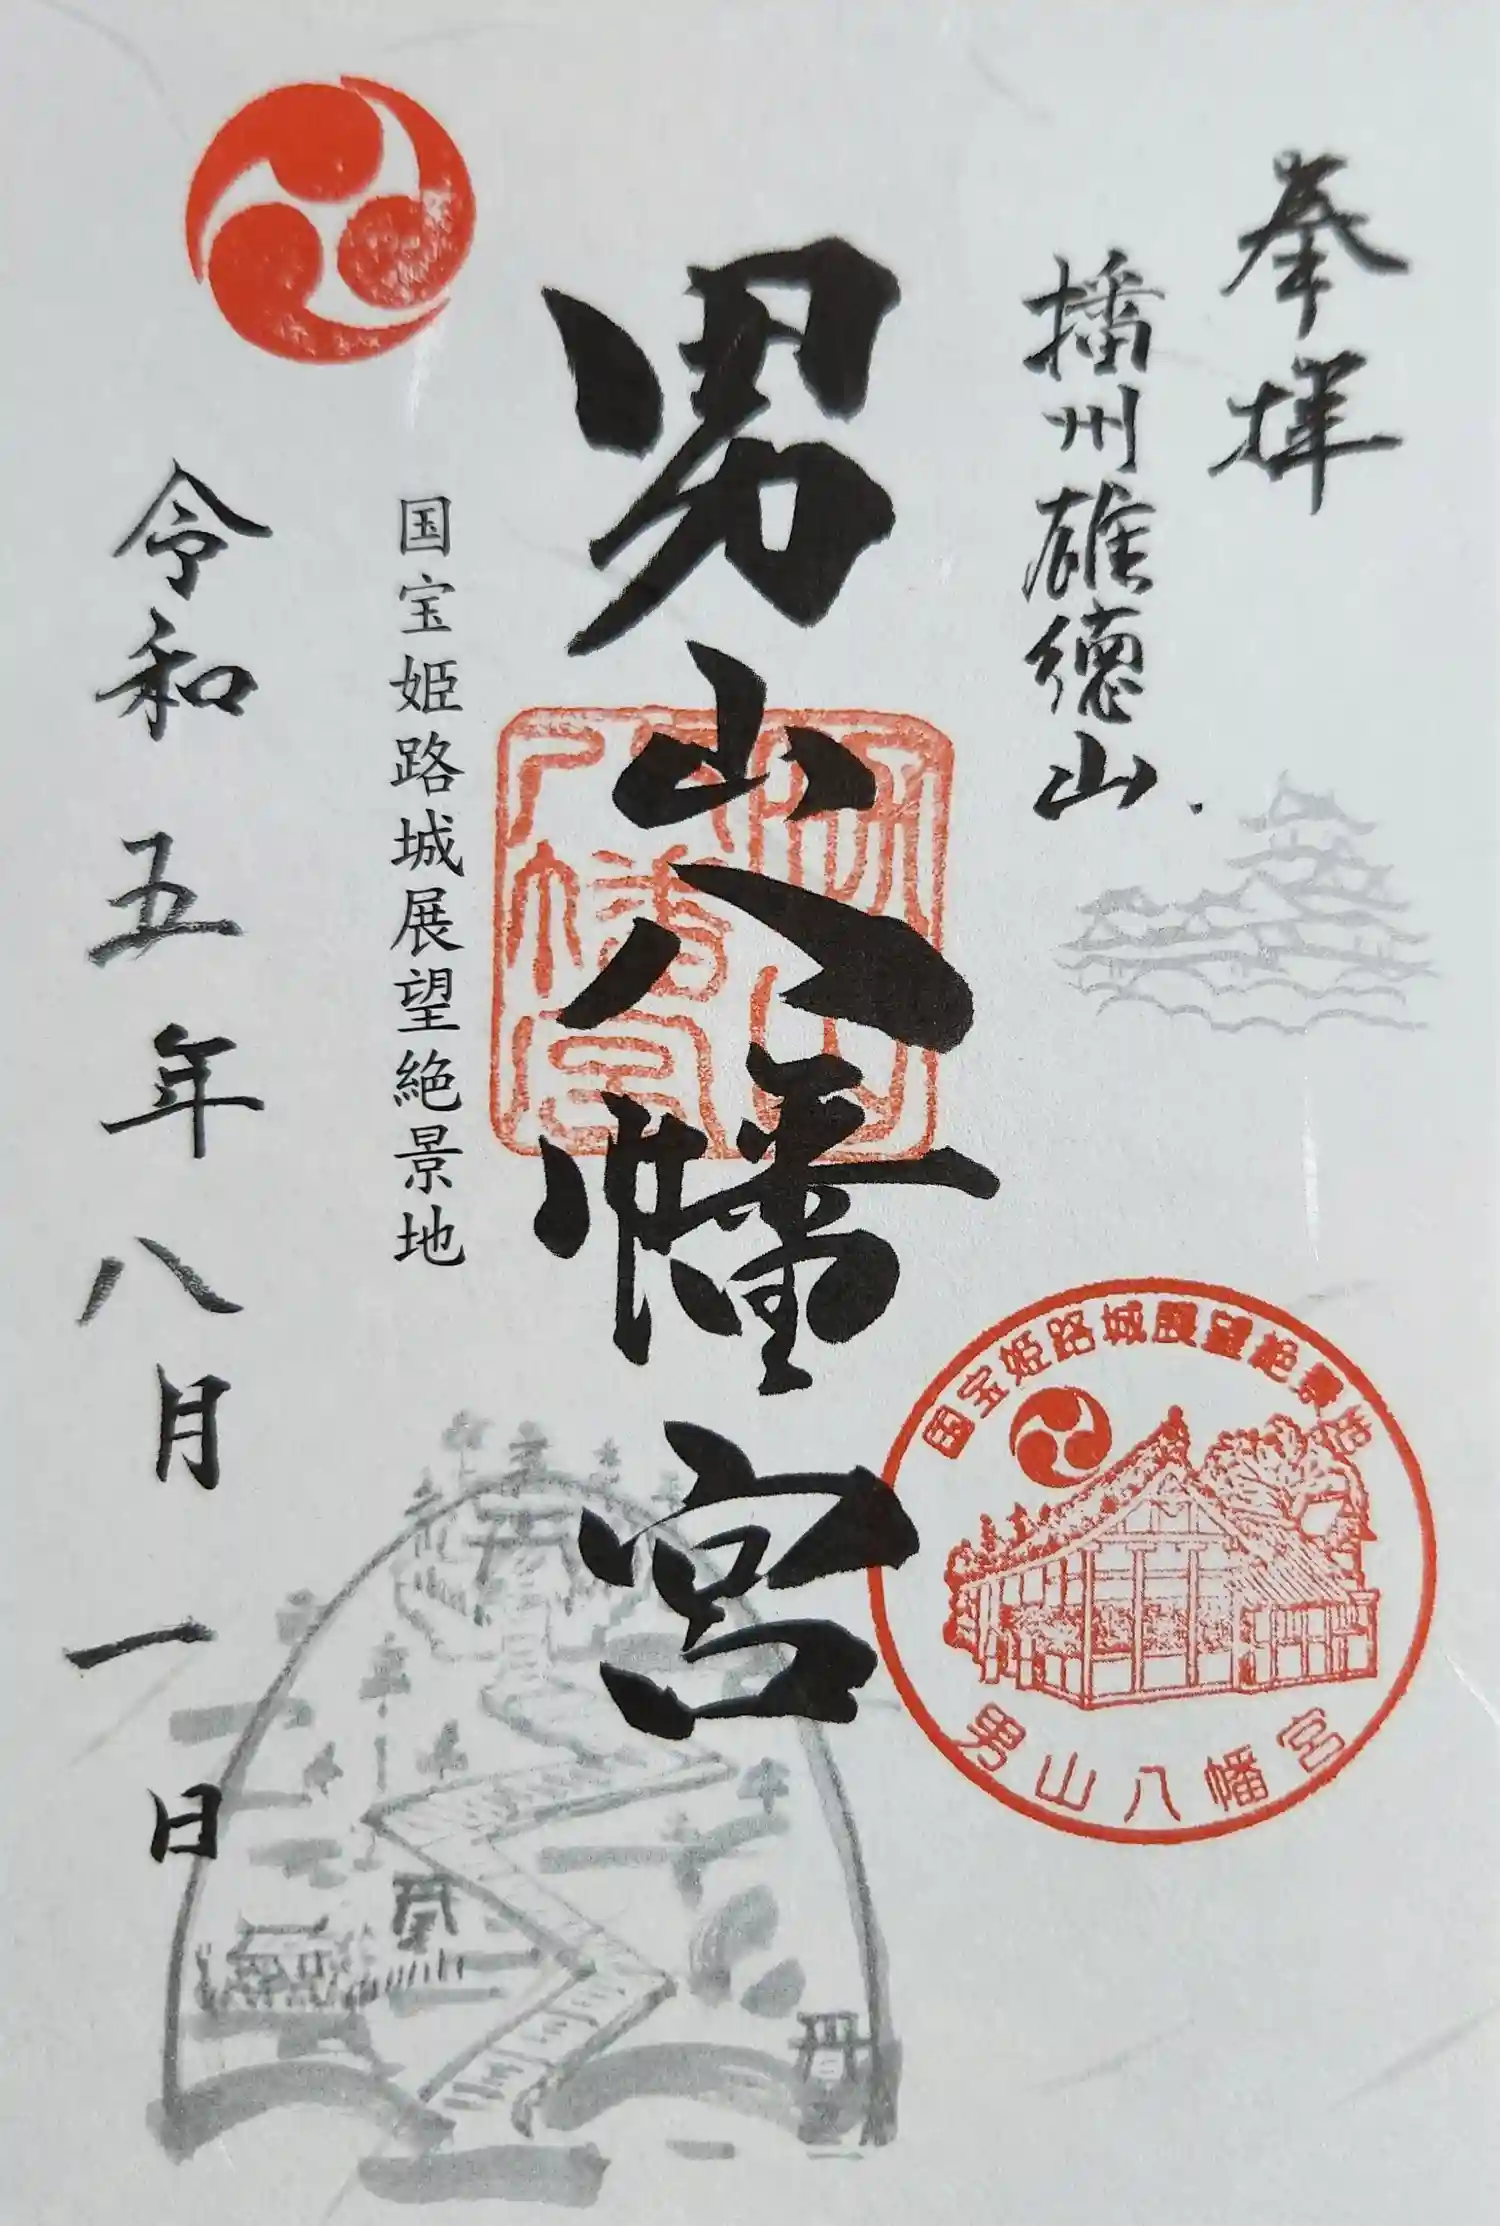 奉拝
播州雄徳山
男山八幡宮
国宝姫路城展望絶景地
令和五年八月一日
国宝姫路城展望絶景地
男山八幡宮